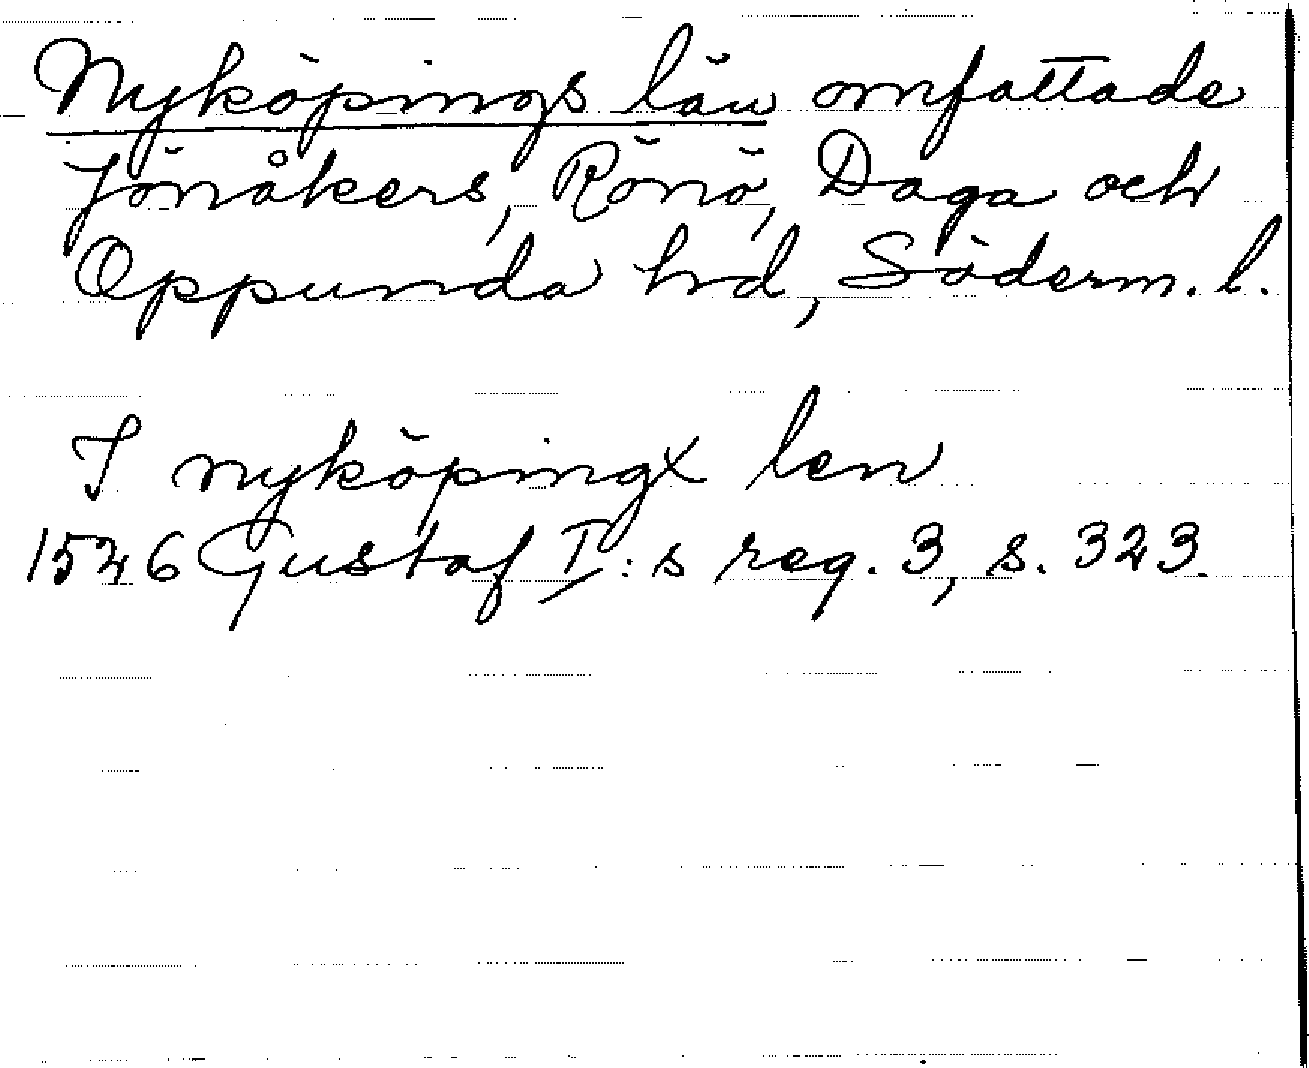 Nyköpings län omfattade
Jönåkers, Rönö, Daga och
Oppunda hd, Söderm. l.
I nyköpingx len
1526 Gustaf I:s reg. 3, s. 323.